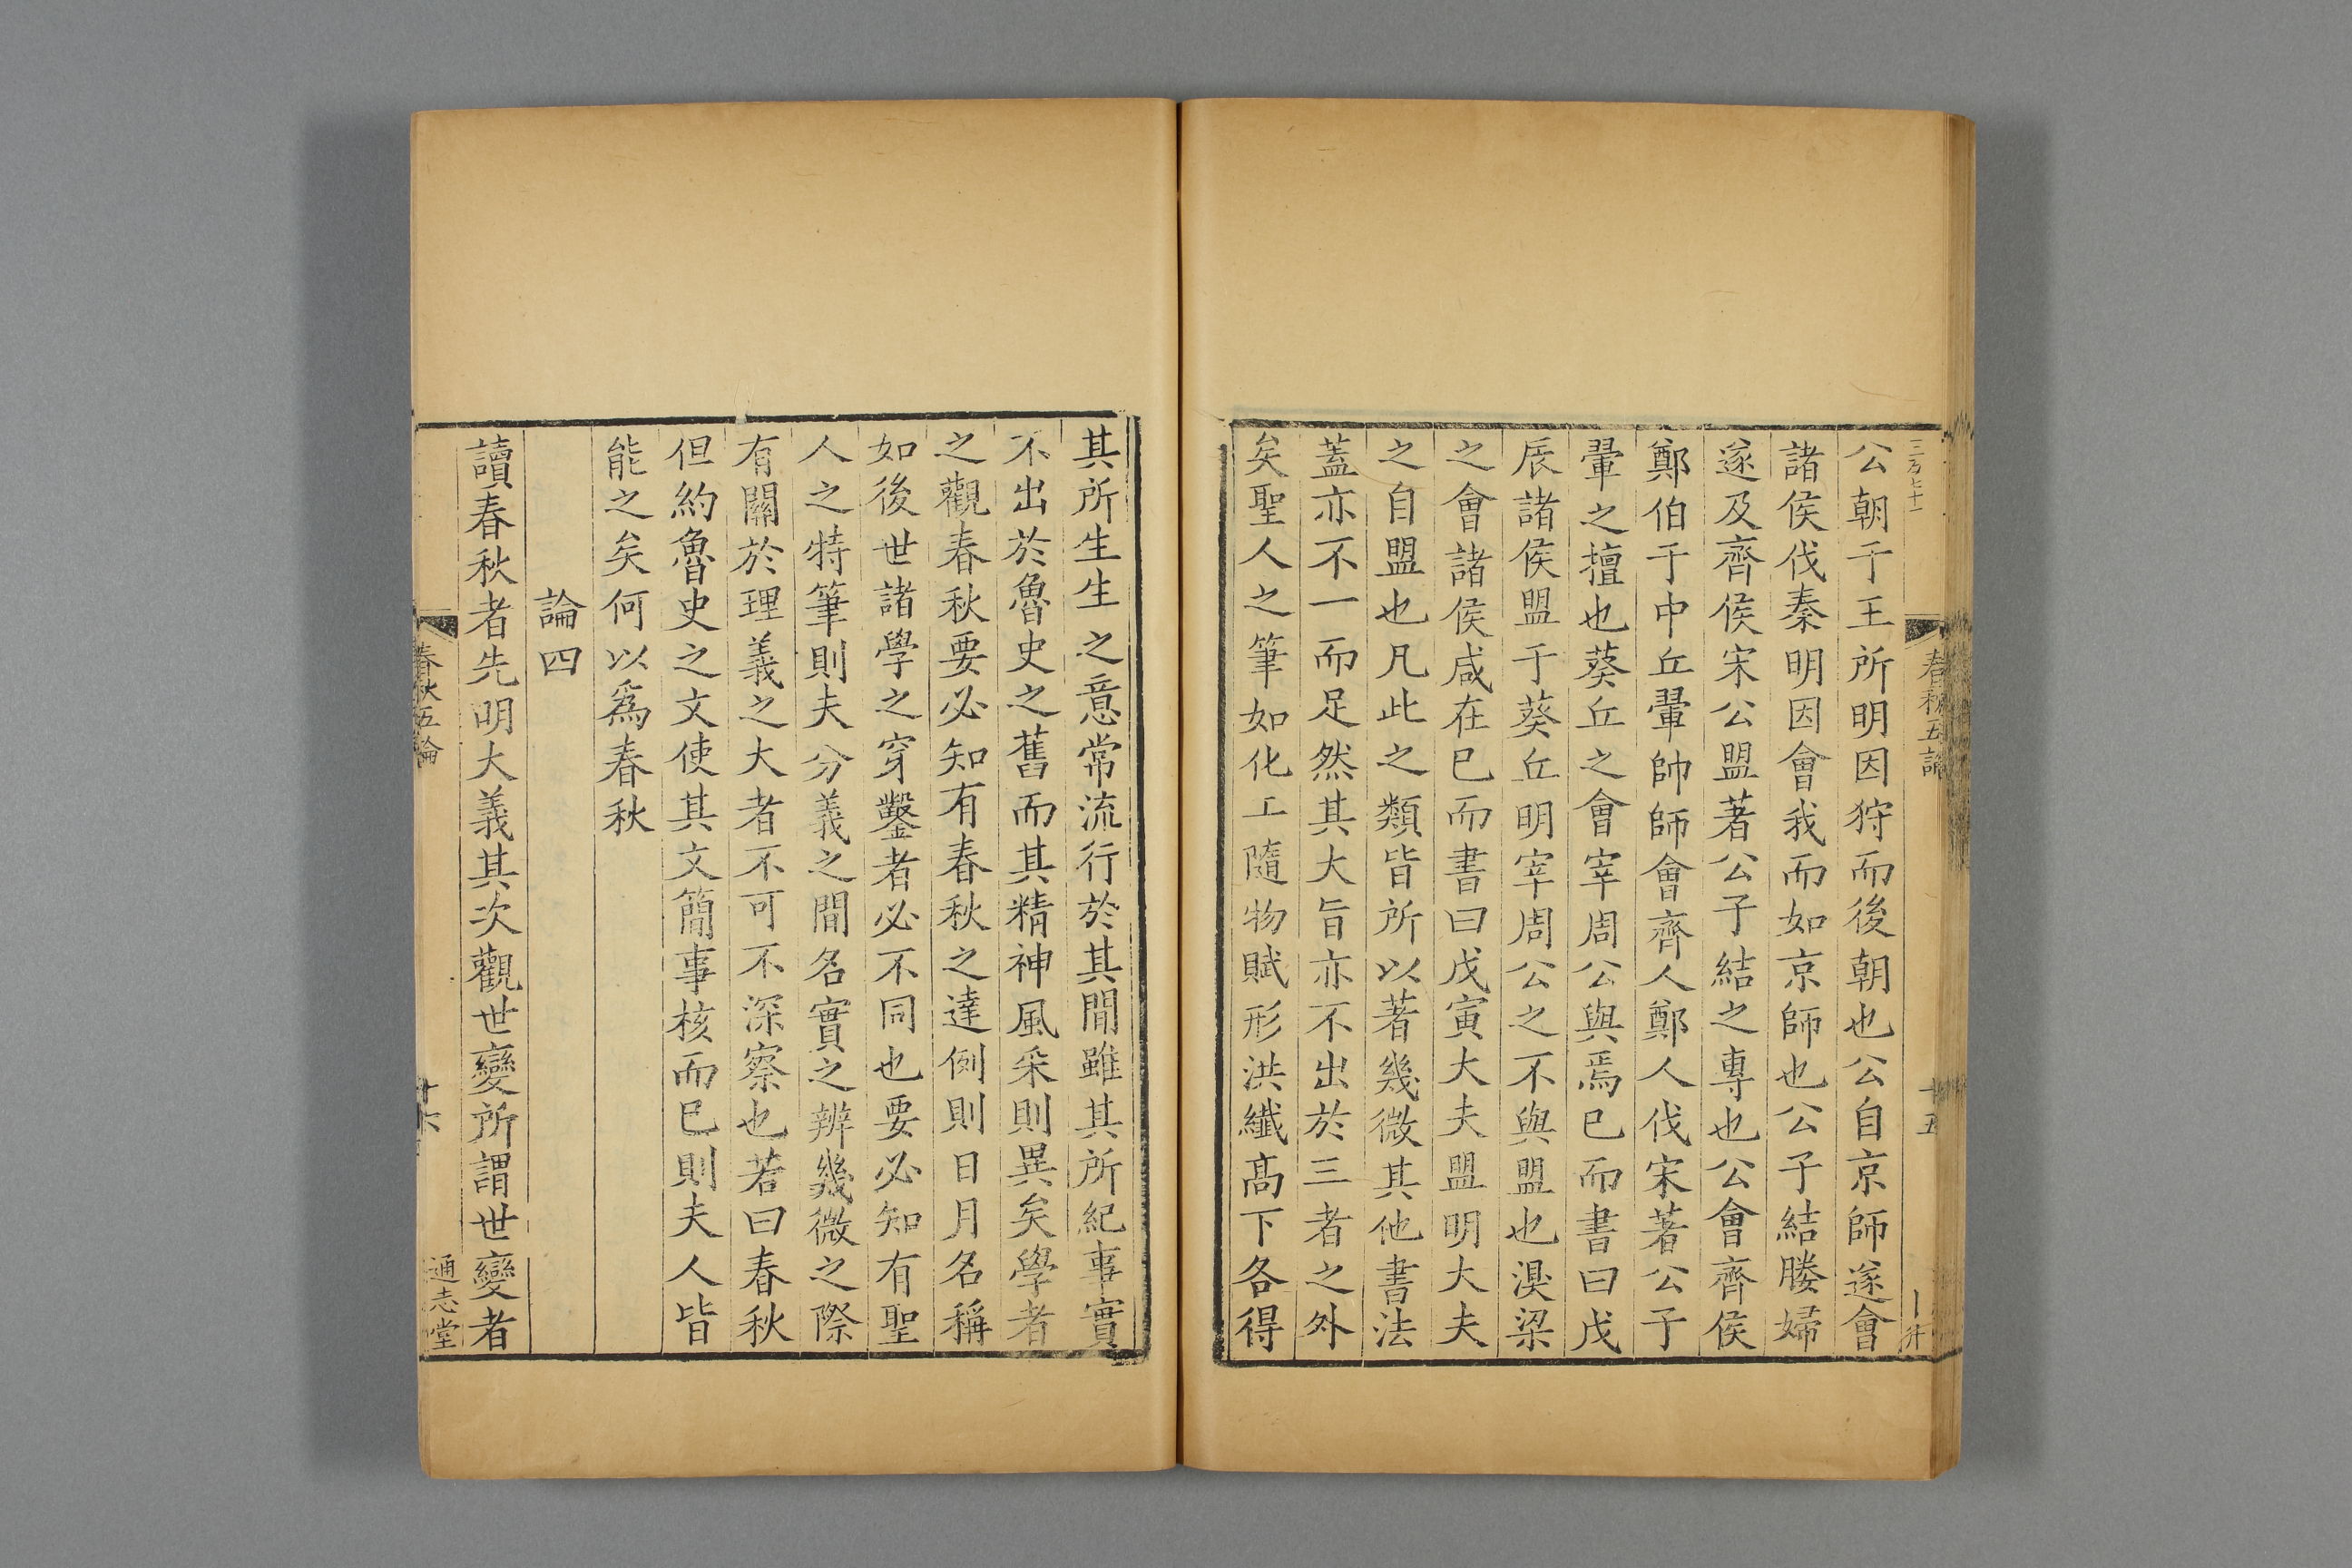 三百七十一
春秋五論
十五
公朝于王所明因狩而後朝也公自京師遂會
諸侯伐秦明因會我而如京師也公子結媵婦
遂及齊侯宋公盟著公子結之專也公會齊侯
鄭伯于中丘翬帥師會齊人鄭人伐宋著公子
翬之擅也葵丘之會宰周公與焉已而書曰戊
辰諸侯盟于葵丘明宰周公之不與盟也溴梁
之會諸侯咸在已而書曰戊寅大夫盟明大夫
之自盟也凡此之類皆所以著幾微其他書法
蓋亦不一而足然其大旨亦不出於三者之外
矣聖人之筆如化工隨物賦形洪纖髙下各得
其所生生之意常流行於其間雖其所紀事實
不出於魯史之舊而其精神風采則異矣學者
之觀春秋要必知有春秋之達例則日月名稱
如後世諸學之穿鑿者必不同也要必知有聖
人之特筆則夫分義之間名實之辨幾微之際
有關於理義之大者不可不深察也若曰春秋
但約魯史之文使其文簡事核而已則夫人皆
能之矣何以為春秋
論四
讀春秋者先明大義其次觀世變所謂世變者
春秋五論
十六
通志堂